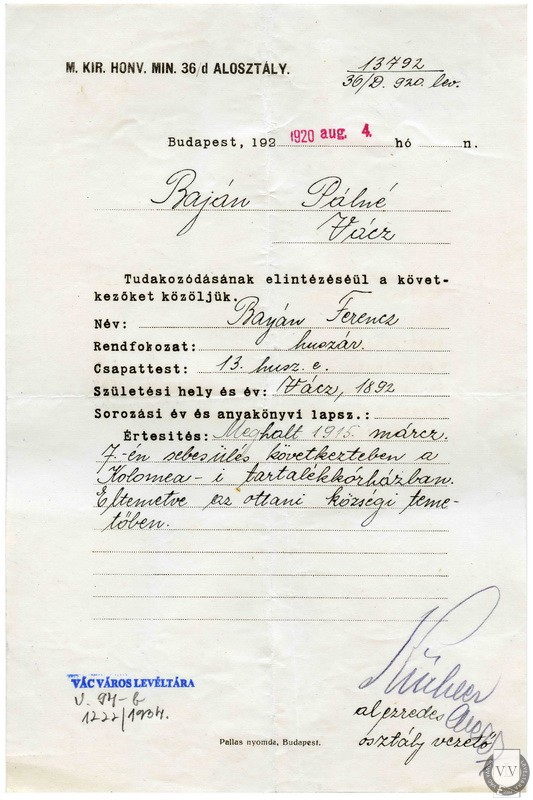 M. KIR. HONV. MIN. 36/d ALOSZTÁLY.
13792
36/D. 920. lev.
Budapest, 192 1920 aug. 4. hó n.
Baján Pálné
Vácz
Tudakozódásának elintézéséül a követ-
kezőket közöljük.
Név: Baján Ferencz
Rendfokozat: huszár.
Csapattest: 13. husz. e.
Születési hely és év: Vácz, 1892
Sorozási év és anyakönyvi lapsz.:
Értesités: Meghalt 1915. márcz.
7.-én sebesülés következteben a
Kolomea-i tartalékkórházban.
Eltemetve az ottani községi teme-
tőben.
VÁC VÁROS LEVÉLTÁRA
V. 94-b
1222/1934.
alezredes
osztály vezető
Pallas nyomda, Budapest.
VV